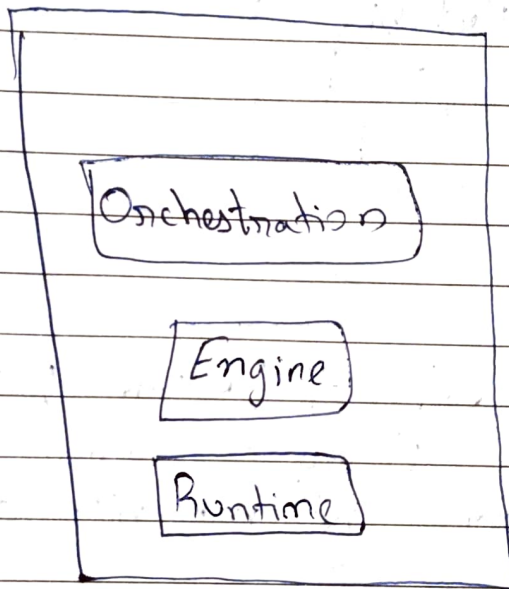 Orchestration
Engine
Runtime